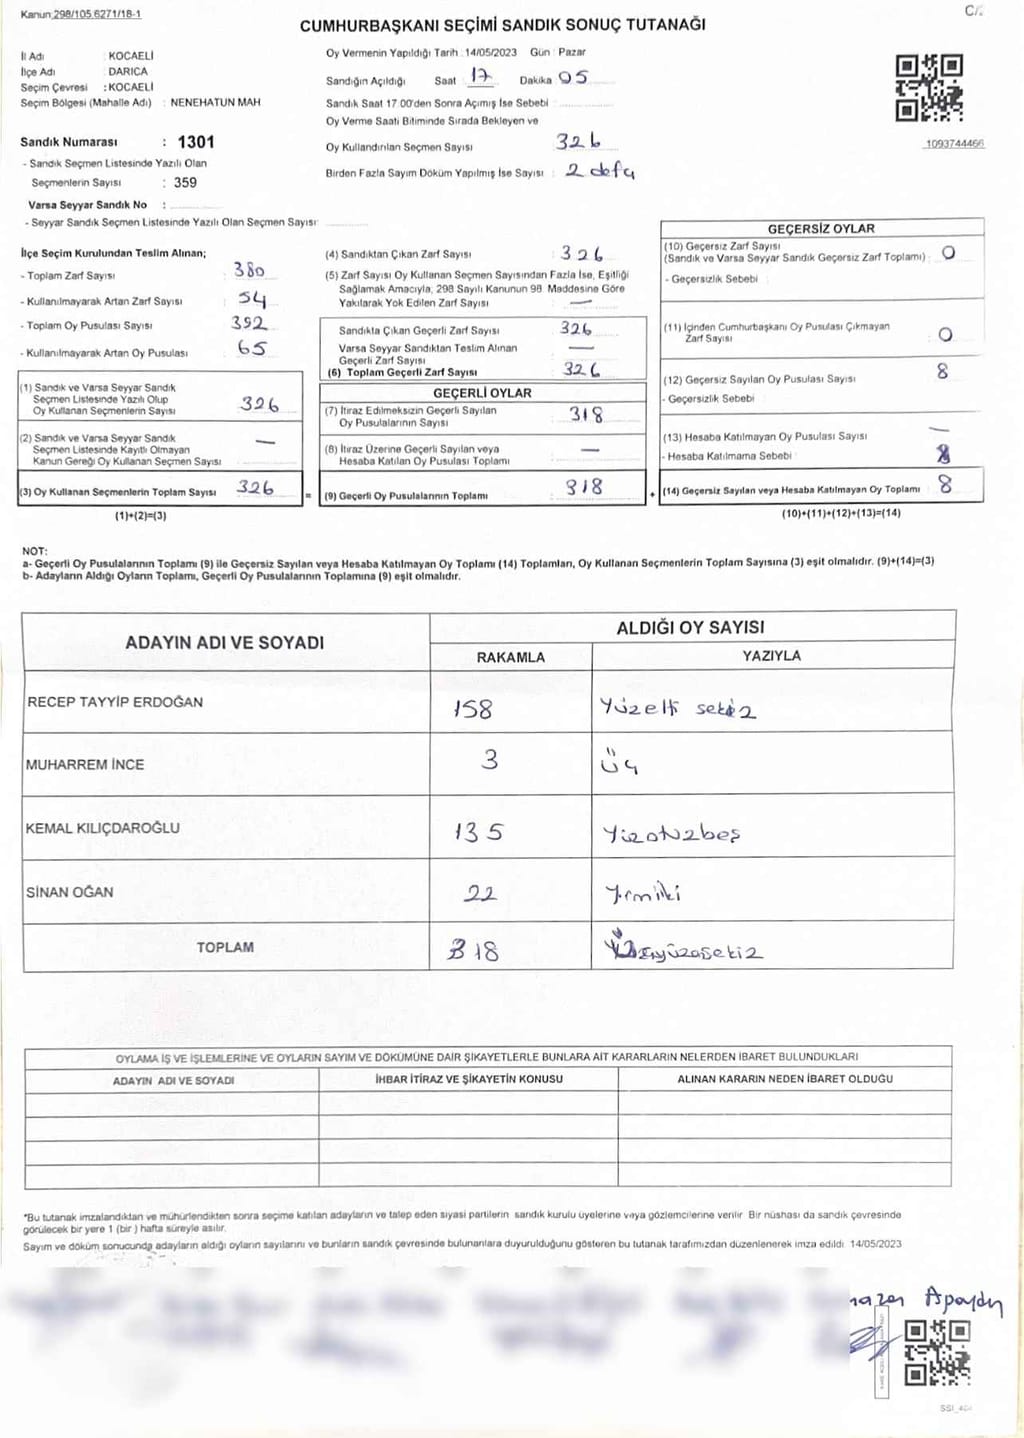 Kanun;298/105.6271/18-1
C/
CUMHURBAŞKANI SEÇİMİ SANDIK SONUÇ TUTANAĞI
İl Adı : KOCAELİ
İlçe Adı : DARICA
Seçim Çevresi : KOCAELİ
Seçim Bölgesi (Mahalle Adı) : NENEHATUN MAH
Sandık Numarası : 1301
- Sandık Seçmen Listesinde Yazılı Olan
Seçmenlerin Sayısı : 359
Varsa Seyyar Sandık No :
- Seyyar Sandık Seçmen Listesinde Yazılı Olan Seçmen Sayısı:
Oy Vermenin Yapıldığı Tarih : 14/05/2023 Gün : Pazar
Sandığın Açıldığı Saat 17 Dakika 05
Sandık Saat 17.00'den Sonra Açımış İse Sebebi :
Oy Verme Saati Bitiminde Sırada Bekleyen ve
Oy Kullandırılan Seçmen Sayısı 326
Birden Fazla Sayım Döküm Yapılmış İse Sayısı : 2 defa
1093744466
İlçe Seçim Kurulundan Teslim Alınan;
- Toplam Zarf Sayısı : 380
- Kullanılmayarak Artan Zarf Sayısı : 54
- Toplam Oy Pusulası Sayısı : 392
- Kullanılmayarak Artan Oy Pusulası : 65
(1) Sandık ve Varsa Seyyar Sandık
Seçmen Listesinde Yazılı Olup
Oy Kullanan Seçmenlerin Sayısı : 326
(2) Sandık ve Varsa Seyyar Sandık
Seçmen Listesinde Kayıtlı Olmayan
Kanun Gereği Oy Kullanan Seçmen Sayısı : —
(3) Oy Kullanan Seçmenlerin Toplam Sayısı 326
(1)+(2)=(3)
(4) Sandıktan Çıkan Zarf Sayısı : 326
(5) Zarf Sayısı Oy Kullanan Seçmen Sayısından Fazla İse, Eşitliği
Sağlamak Amacıyla, 298 Sayılı Kanunun 98. Maddesine Göre
Yakılarak Yok Edilen Zarf Sayısı : —
Sandıkta Çıkan Geçerli Zarf Sayısı : 326
Varsa Seyyar Sandıktan Teslim Alınan
Geçerli Zarf Sayısı : —
(6) Toplam Geçerli Zarf Sayısı : 326
GEÇERLİ OYLAR
(7) İtiraz Edilmeksizin Geçerli Sayılan
Oy Pusulalarının Sayısı : 318
(8) İtiraz Üzerine Geçerli Sayılan veya
Hesaba Katılan Oy Pusulası Toplamı : —
= (9) Geçerli Oy Pusulalarının Toplamı : 318
GEÇERSİZ OYLAR
(10) Geçersiz Zarf Sayısı
(Sandık ve Varsa Seyyar Sandık Geçersiz Zarf Toplamı) : 0
- Geçersizlik Sebebi :
(11) İçinden Cumhurbaşkanı Oy Pusulası Çıkmayan
Zarf Sayısı : 0
(12) Geçersiz Sayılan Oy Pusulası Sayısı : 8
- Geçersizlik Sebebi :
(13) Hesaba Katılmayan Oy Pusulası Sayısı : —
- Hesaba Katılmama Sebebi :
+ (14) Geçersiz Sayılan veya Hesaba Katılmayan Oy Toplamı : 8
(10)+(11)+(12)+(13)=(14)
NOT:
a- Geçerli Oy Pusulalarının Toplamı (9) ile Geçersiz Sayılan veya Hesaba Katılmayan Oy Toplamı (14) Toplamları, Oy Kullanan Seçmenlerin Toplam Sayısına (3) eşit olmalıdır. (9)+(14)=(3)
b- Adayların Aldığı Oyların Toplamı, Geçerli Oy Pusulalarının Toplamına (9) eşit olmalıdır.
ADAYIN ADI VE SOYADI
ALDIĞI OY SAYISI
RAKAMLA YAZIYLA
RECEP TAYYİP ERDOĞAN 158 Yüzelli sekiz
MUHARREM İNCE 3 Üç
KEMAL KILIÇDAROĞLU 135 Yüzotuzbeş
SİNAN OĞAN 22 Yirmiiki
TOPLAM 318
OYLAMA İŞ VE İŞLEMLERİNE VE OYLARIN SAYIM VE DÖKÜMÜNE DAİR ŞİKAYETLERLE BUNLARA AİT KARARLARIN NELERDEN İBARET BULUNDUKLARI
ADAYIN ADI VE SOYADI İHBAR İTİRAZ VE ŞİKAYETİN KONUSU ALINAN KARARIN NEDEN İBARET OLDUĞU
*Bu tutanak imzalandıktan ve mühürlendikten sonra seçime katılan adayların ve talep eden siyasi partilerin sandık kurulu üyelerine veya gözlemcilerine verilir. Bir nüshası da sandık çevresinde
görülecek bir yere 1 (bir ) hafta süreyle asılır.
Sayım ve döküm sonucunda adayların aldığı oyların sayılarını ve bunların sandık çevresinde bulunanlara duyurulduğunu gösteren bu tutanak tarafımızdan düzenlenerek imza edildi. 14/05/2023
Apaydın